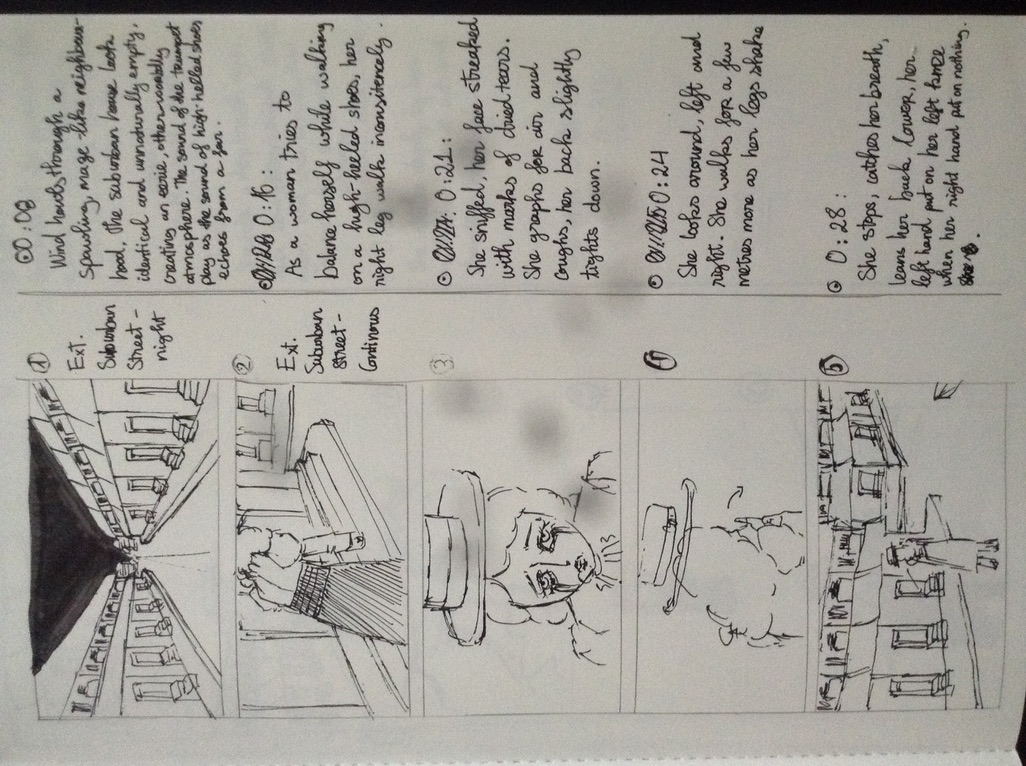 ①
Ext.
Suburban
Street -
night
0:08
Wind howls through a
Spawling, maze-like neighbour-
hood, the suburban house look
identical and unnaturally empty,
creating an eerie, otherworldly
atmosphere. The sound of the trumpet
play as the sound of high-helled shoes
echoes from a far.
②
Ext.
Suburban
Street -
Continous
0:16:
As a woman tries to
balance herself while walking
on a high-heeled shoes, her
right leg walk inconsistenly.
③
0:21:
She sniffed, her face streaked
with marks of dried tears.
She graphs for air and
coughs, her back slightly
tights down.
④
0:24
She looks around, left and
right. She walks for a few
metres more as her legs shake
⑤
0:28:
She stops, catches her breath,
leans her back lower, her
left hand put on her left knee
when her right hand put on nothing.